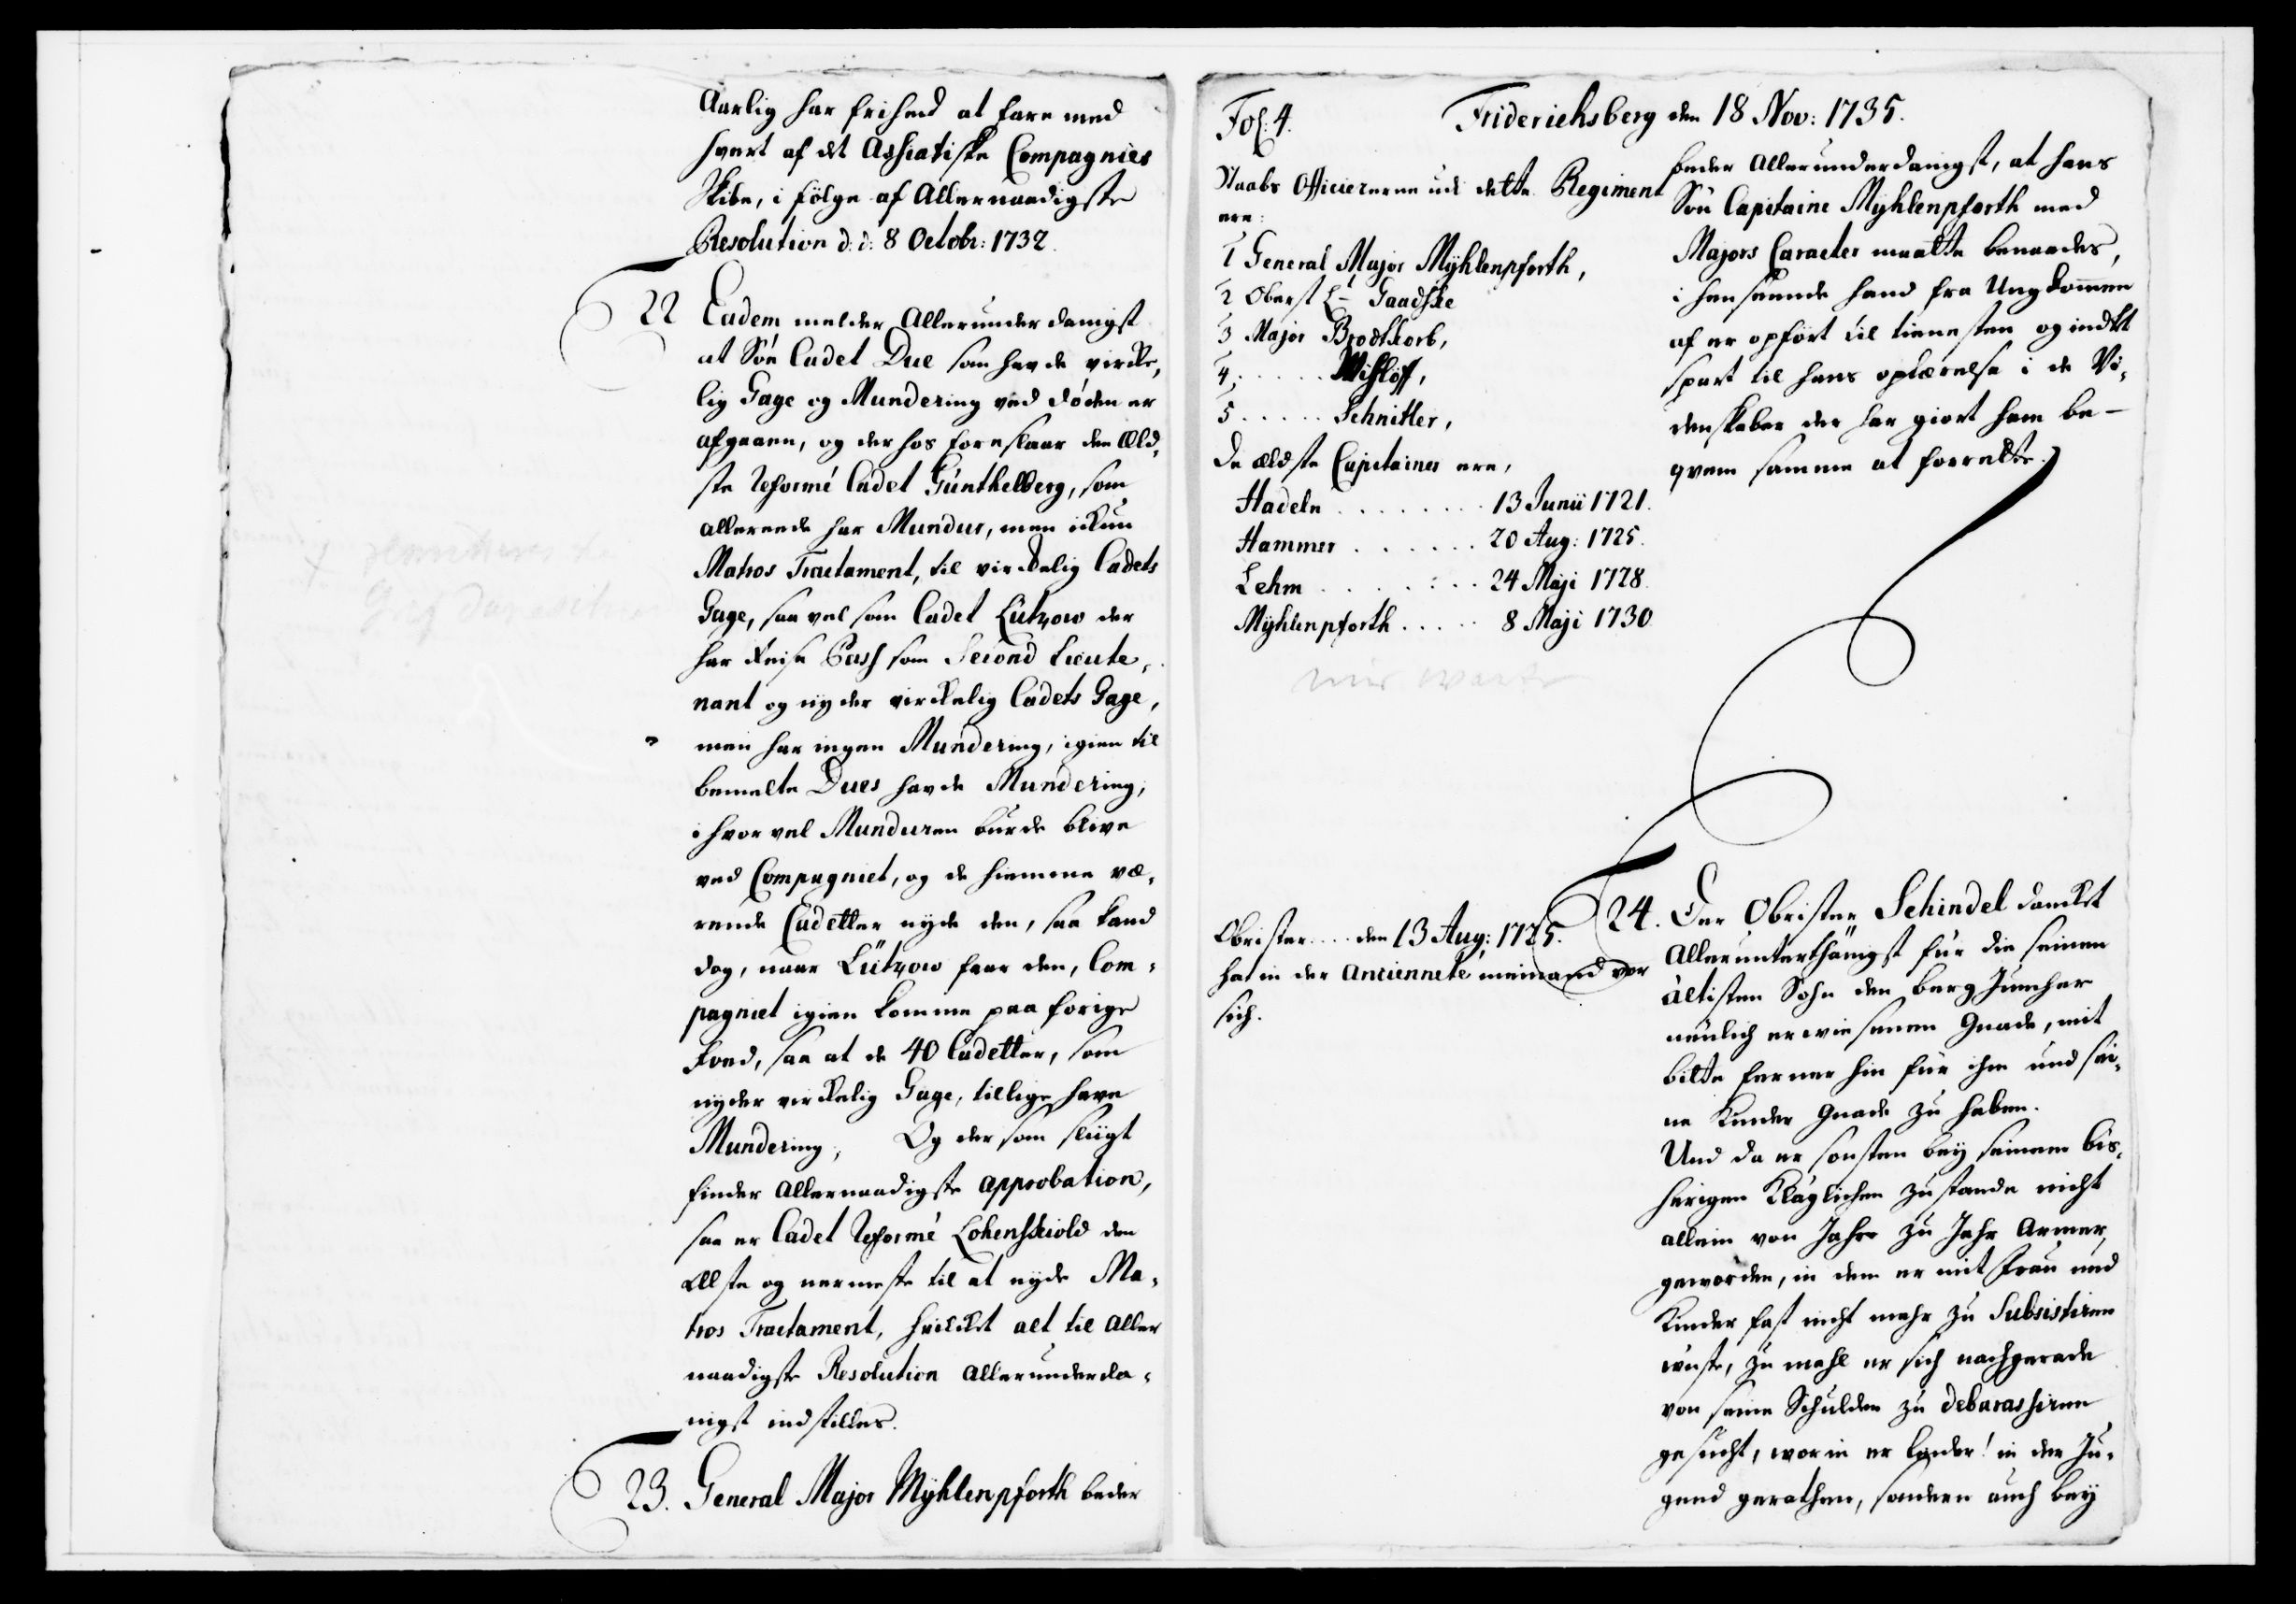 Aarlig har frihed at fare med
hvert af det Asiatiske Compagnies
Skibe, i fölge af Allernaadigste
Resolution d: d: 8 Octobr: 1732.
22 Eadem melder Allerunderdanigst
at Söe Cadet Due som havde vircke,
lig Gage og Mundering ved döden er
afgaaen, og der hos foreslaar den Æld,
ste Reformé Cadet Günthelberg, som
allerede har Mundur, men ickun
Matros Tractament, til virckelig Cadets
Gage, saa vel som Cadet Lützow der
har Reise Pass som Second Lieute,
nant og nyder virckelig Cadets Gage,
men har ingen Mundering, igien til
bemelte Dues havde Mundering,
ihvorvel Munduren burde blive
ved Compagniet, og de hiemme væ,
rende Cadetter nyde den, saa kand
dog, naar Lützow faar den, Com,
pagniet igien komme paa forige
Foed, saa at de 40 Cadetter, som
nyder virckelig Gage, tillige have
Mundering, Og der som sligt
finder Allernaadigste approbation,
saa er Cadet Reformé Lohenskiold den
ælste og nermeste til at nyde Ma,
tros Tractament, hvilket alt til Aller
naadigste Resolution Allerunderda,
nigst indstilles.
23. General Major Mÿhlenpforth beder
Fol: 4. Friderichsberg den 18 Nov: 1735.
Staabs Officiererne ud dette Regiment
ere:
1 General Major Mÿhlenpforth,
2 Oberst Lt Gaadske
3 Major Brodtkorb,
4, ..... Wislöff,
5 ..... Schnitler,
De ældste Capitainer ere,
Hadeln ........ 13 Junii 1721.
Hammer ...... 20 Aug: 1725.
Lehm ....... 24 Maji 1728.
Mÿhlenpforth ..... 8 Maji 1730
beder Allerunderdanigst, at hans
Sön Capitaine Mÿhlenpforth med
Majors Caracter maatte benaades,
i henseende hand fra Ungdommen
af er opfört til tienesten og indtet
spart til hans oplærelse i de Vi,
denskaber der har giort ham be-
qvem samme at forrette.
Obrister .... den 13 Aug: 1725.
hat in der Ancienneté niemand vor
sich.
24. Der Obrister Schindel dancket
Allerunterthänigst für die seinem
ältisten Sohn den Berg Juncher
neulich erwiesenen Gnade, mit
bitte ferner hin für ihm und sei,
ne Kinder Gnade zu haben.
Und da er sonsten beÿ seinem bis,
herigen Kläglichen zustande nicht
allein von Jahre zu Jahr Armer,
geworden, in dem er mit Frau und
Kinder fast nicht mehr zu Subsistiren
wuste, zu mahl er sich nachgerade
von seine Schulden zu debarassiren
gesucht, worin er leider! in der Ju,
gend gerathen, sondern auch beÿ